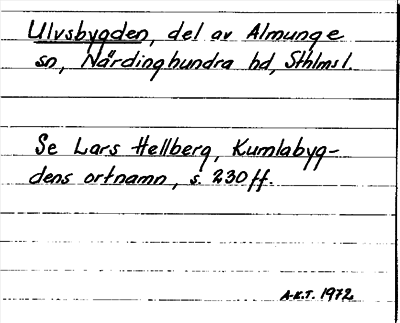 Ulvsbygden, del av Almunge
sn, Närdinghundra hd, Sthlms l.
Se Lars Hellberg, Kumlabyg-
dens ortnamn, s. 230 ff.
A-K.T. 1972